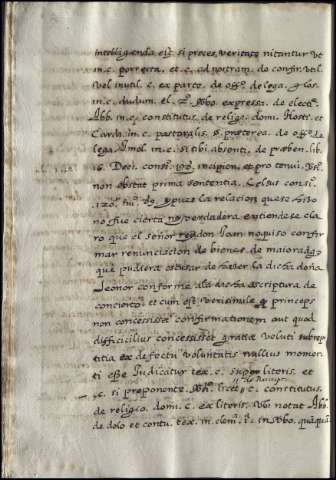 intelligenda est si preces veritate nitantur ut
in.c. porrecta, et.c. ad nostram. de confir. vtil.
vel inutil. c. ex parte. de offi. delega. glos.
in.c. dudum. el. 2. Vbo. expressa. de elect.
Abb. in.c. constitutus. de religi. domi. Hosti. et
Card. in.c. pastoralis. §. præterea. de offi. de
lega. in.c. si tibi absenti. de præben. lib.
6. Deci. consi. incipien. et pro tenui.
non obstat prima sententia. Celsus consi.
120. nu. y pues la relacion que se hizo
no fue cierta no verdadera entiende se cla
ro que el señor Rey don Joan no quiso confir
mar renunciacion de bienes de maioradgo
que pudiera ser de la dicha doña
Leonor conforme a la dicha escriptura de
concierto. et cum est verisimile princeps
non concessisset confirmationem aut quod
difficilius concessisset gratie veluti subrep
titia ex defectu voluntatis nullius momen
ti esse Judicatur tex. c. super literis. et
.c. si proponente. de Rescript. c. constitutus.
de religio. domi. c. ex literis. Vbi notat Abb.
de dolo et contu. tex. in clem. 1. in Vbo.